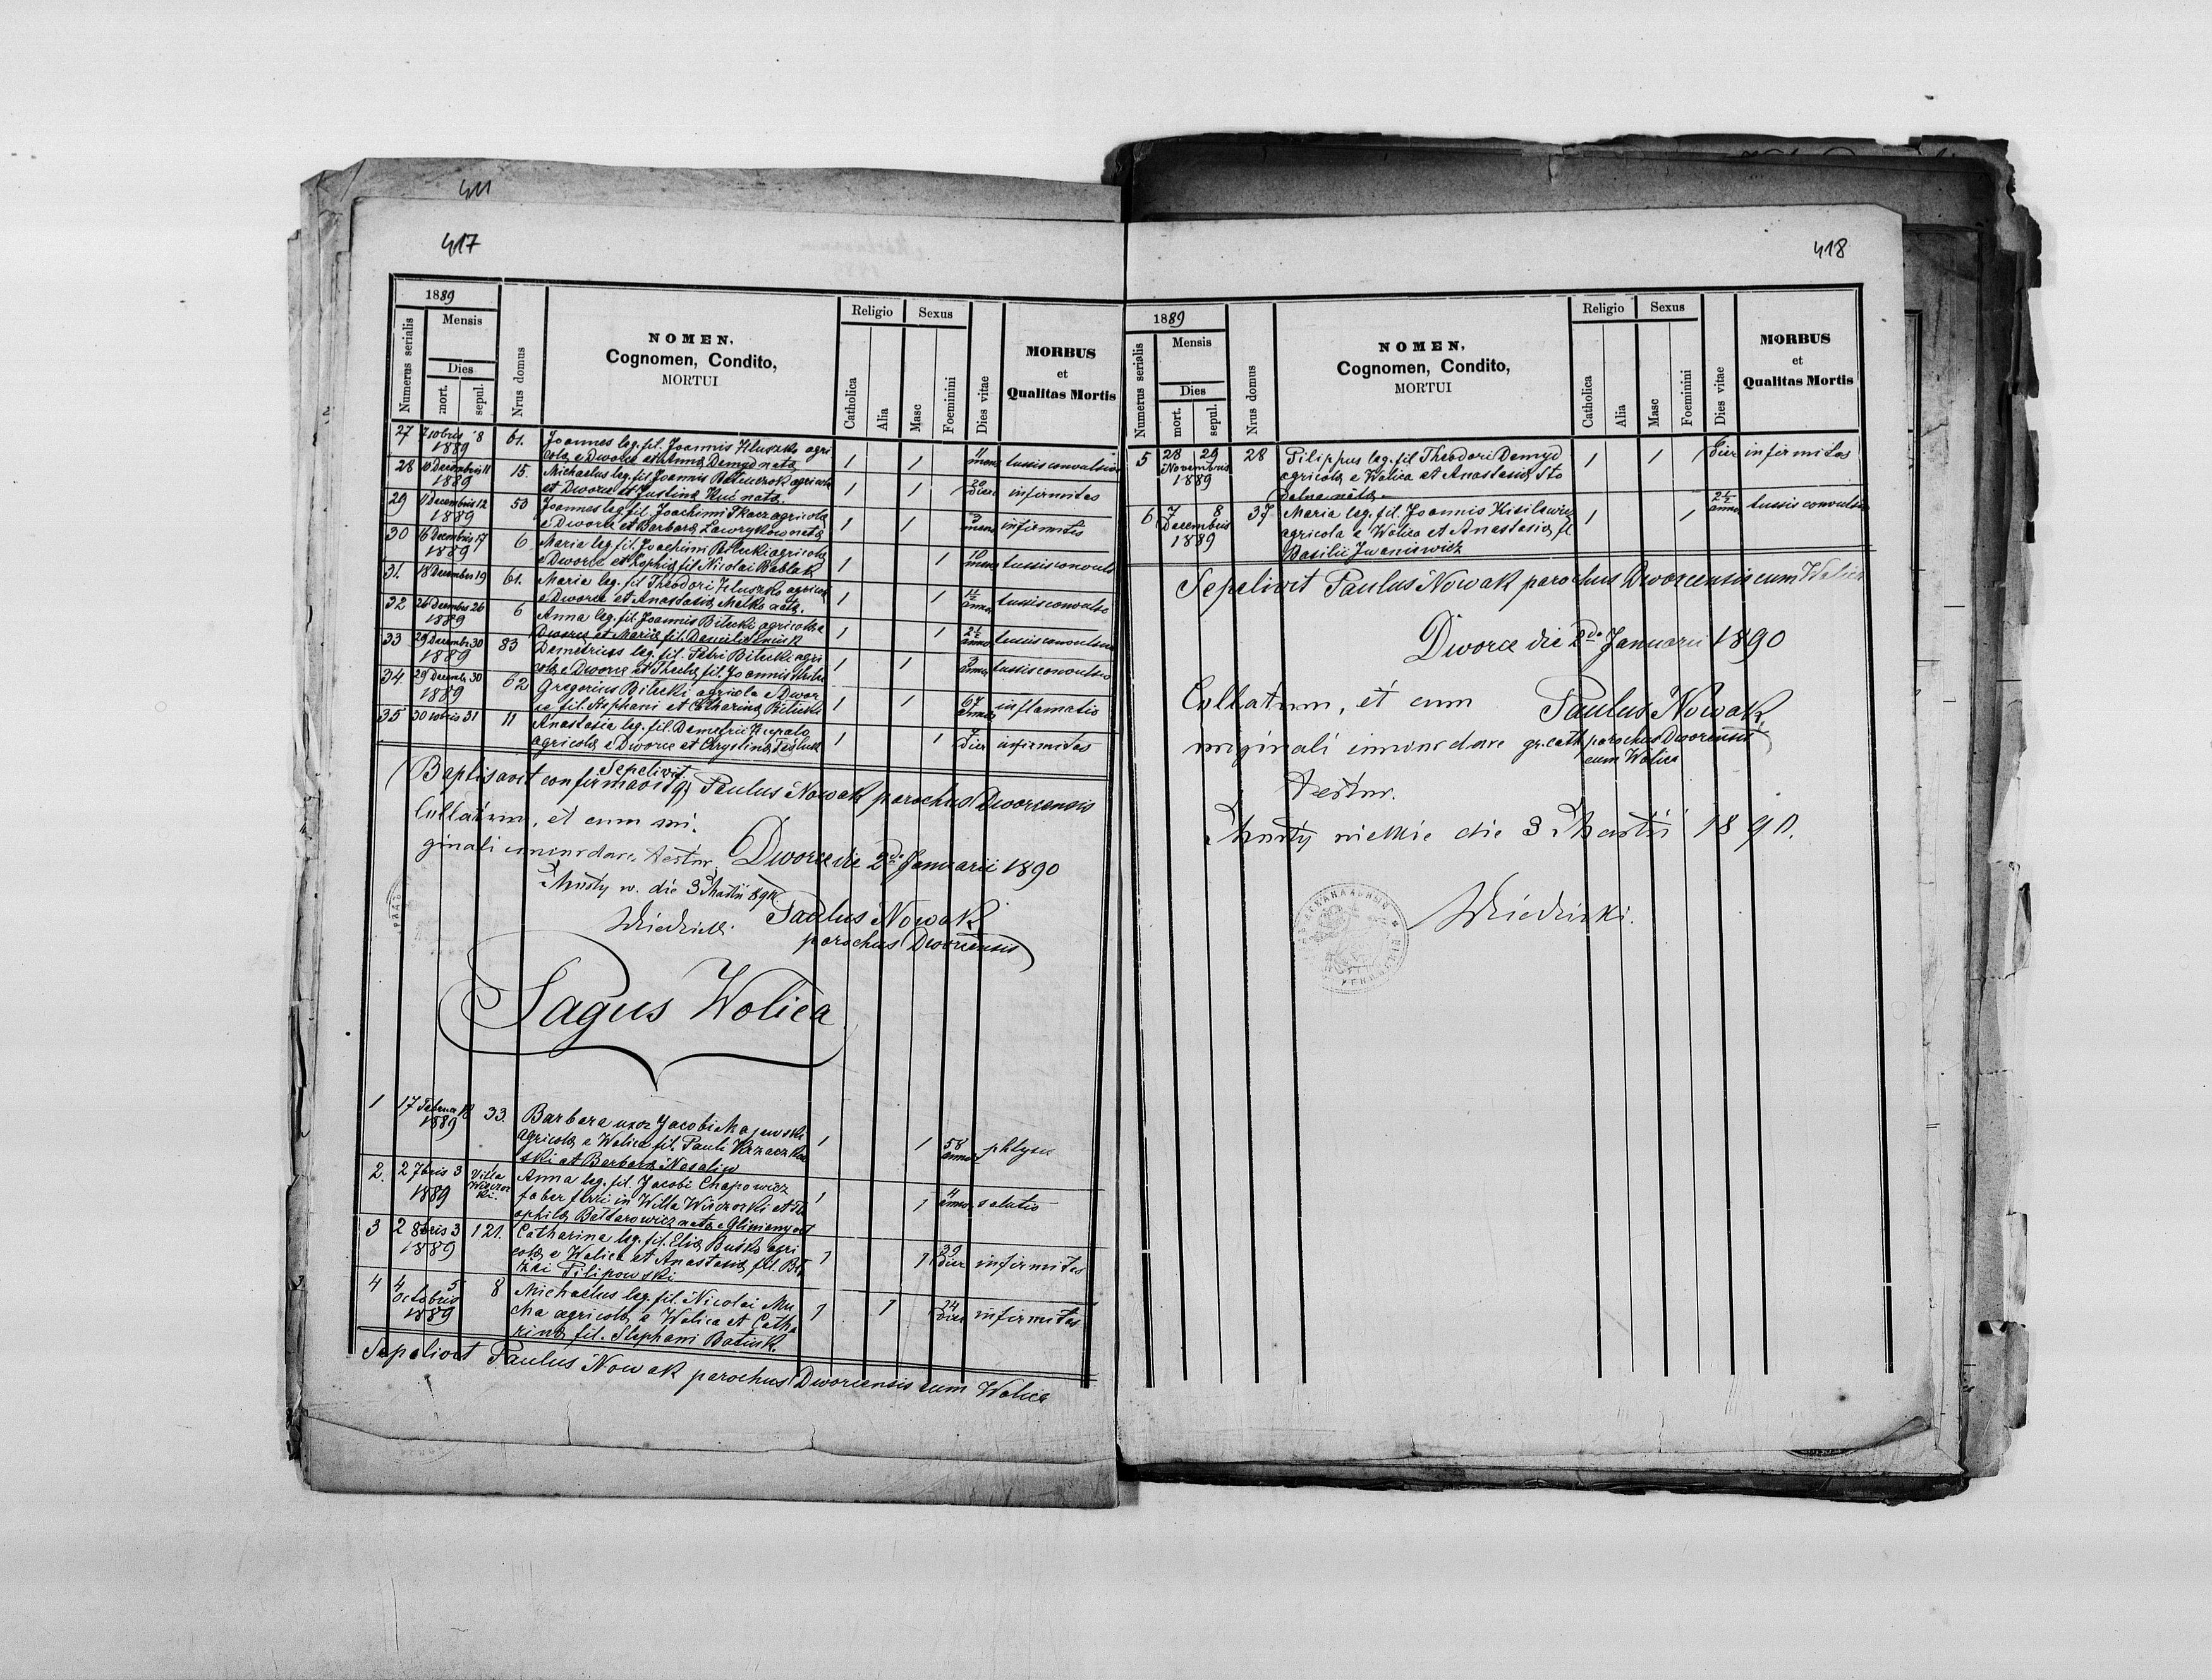 411
417
1889
Numerus serialis
Mensis
Dies
mort.
sepul.
Nrus domus
NOMEN,
Cognomen, Condito,
MORTUI
Religio
Catholica
Alia
Sexus
Masc
Foeminini
Dies vitae
MORBUS
et
Qualitas Mortis
27 7 10bris 8 1889 61. Joannes leg. fil. Joannis Hluszko agri
cola e Dworce et Anna Demyd nata 1 1 11 mens tussis convulsiva
28 10 Decembris 11 1889 15. Michaelus leg. fil. Joannis agricola
et Dworce et Justina nata 1 1 20 dier infirmitas
29 11 Decembris 12 1889 53 Joannes leg. fil. Joachimi Tkacz agricola
e Dworce et Barbara Lawrykow nata 1 1 mens infirmitas
30 16 Decembris 17 1889 6 Maria leg. fil. Joachimi Bilecki agricola
e Dworce et Sophia fil. Nicolai Bablak 1 1 10 mens tussis convuls
31. 18 Decembris 19 61. Maria leg. fil. Theodori Hluszko agricola
e Dworce et Anastasia Melko nata. 1 1 1½ anno tussis convulsi
32 26 Decembris 26 1889 6 Anna leg. fil. Joannis Bilecki agricola e
Dworce et Maria fil. 1 1 2½ anno tussis convulsiva
33 29 Decembr 30 1889 83 Demetrius leg. fil. Petri Bilecki agri
cola e Dworce et Thecla fil. Joannis 1 1 anno tussis convulsiv
34. 29 Decembr 30 1889 62 Gregorius Bilecki agricola e Dwor
ce fil. Stephani et Catharina Bilecki 1 1 67 annor inflamatio
35 30 10bris 31 11 Anastasia leg. fil. Demetrii Krupalo
agricola e Dworce et Chrystina 1 1 7 dier infirmitas
Sepelivit
Baptisavit confirmavitq Paulus Nowak parochus Dworcensis
Collatum, et cum ori
ginali concordare testor. Dworce die 2do Januarii 1890
Mosty w. die 3 Martii 890
Paulus Nowak
parochus Dworcensis
Pagus Wolica
1 17 Februar 18 1889 33. Barbara uxor Jacobi Majewski
agricola e Wolica fil. Pauli
ski et Barbara 1 1 58 annor phtysis
2. 2 7bris 3 1889 Villa Wieczor ki. Anna leg. fil. Jacobi Chapowicz
faber ferri in Willa Wieczorki et Te
ophila nata e Gliniany 1 1 4 annor
3 2 8bris 3 1889 121. Catharina leg. fil. Elia Busko agri
cola e Wolica et Anastasia fil.
Pilipowski 1 1 29 dier infirmitas
4 4 Octobris 5 1889 8 Michaelus leg. fil. Nicolai Mu
cha agricola e Wolica et Catha
rina fil. Stephani Batiuk. 1 1 14 dier infirmitas
Sepelivit Paulus Nowak parochus Dworcensis cum Wolica
418
1889
Numerus serialis
Mensis
Dies
mort.
sepul.
Nrus domus
NOMEN,
Cognomen, Condito,
MORTUI
Religio
Catholica
Alia
Sexus
Masc
Foeminini
Dies vitae
MORBUS
et
Qualitas Mortis
5 28 29 Novembris 1889 28 Pilippus leg. fil Theodori Demyd
agricola e Wolica et Anastasia Sto
Dolna nata. 1 1 dier infirmitas
6 7 8 Decembris 1889 37 Maria leg. fil. Joannis Kisilewicz
agricola e Wolica et Anastasia fil
Basilii Iwaniewicz 1 1 2½ annor tussis convulsiva
Sepelivit Paulus Nowak parochus Dworcensis cum Wolica
Dworce die 2do Januarii 1890
Collatum, et cum
Paulus Nowak
originali concordare
gr. cath parochus Dworcensis
cum Wolica
testor.
Mosty wielkie die 3 Martii 1890.